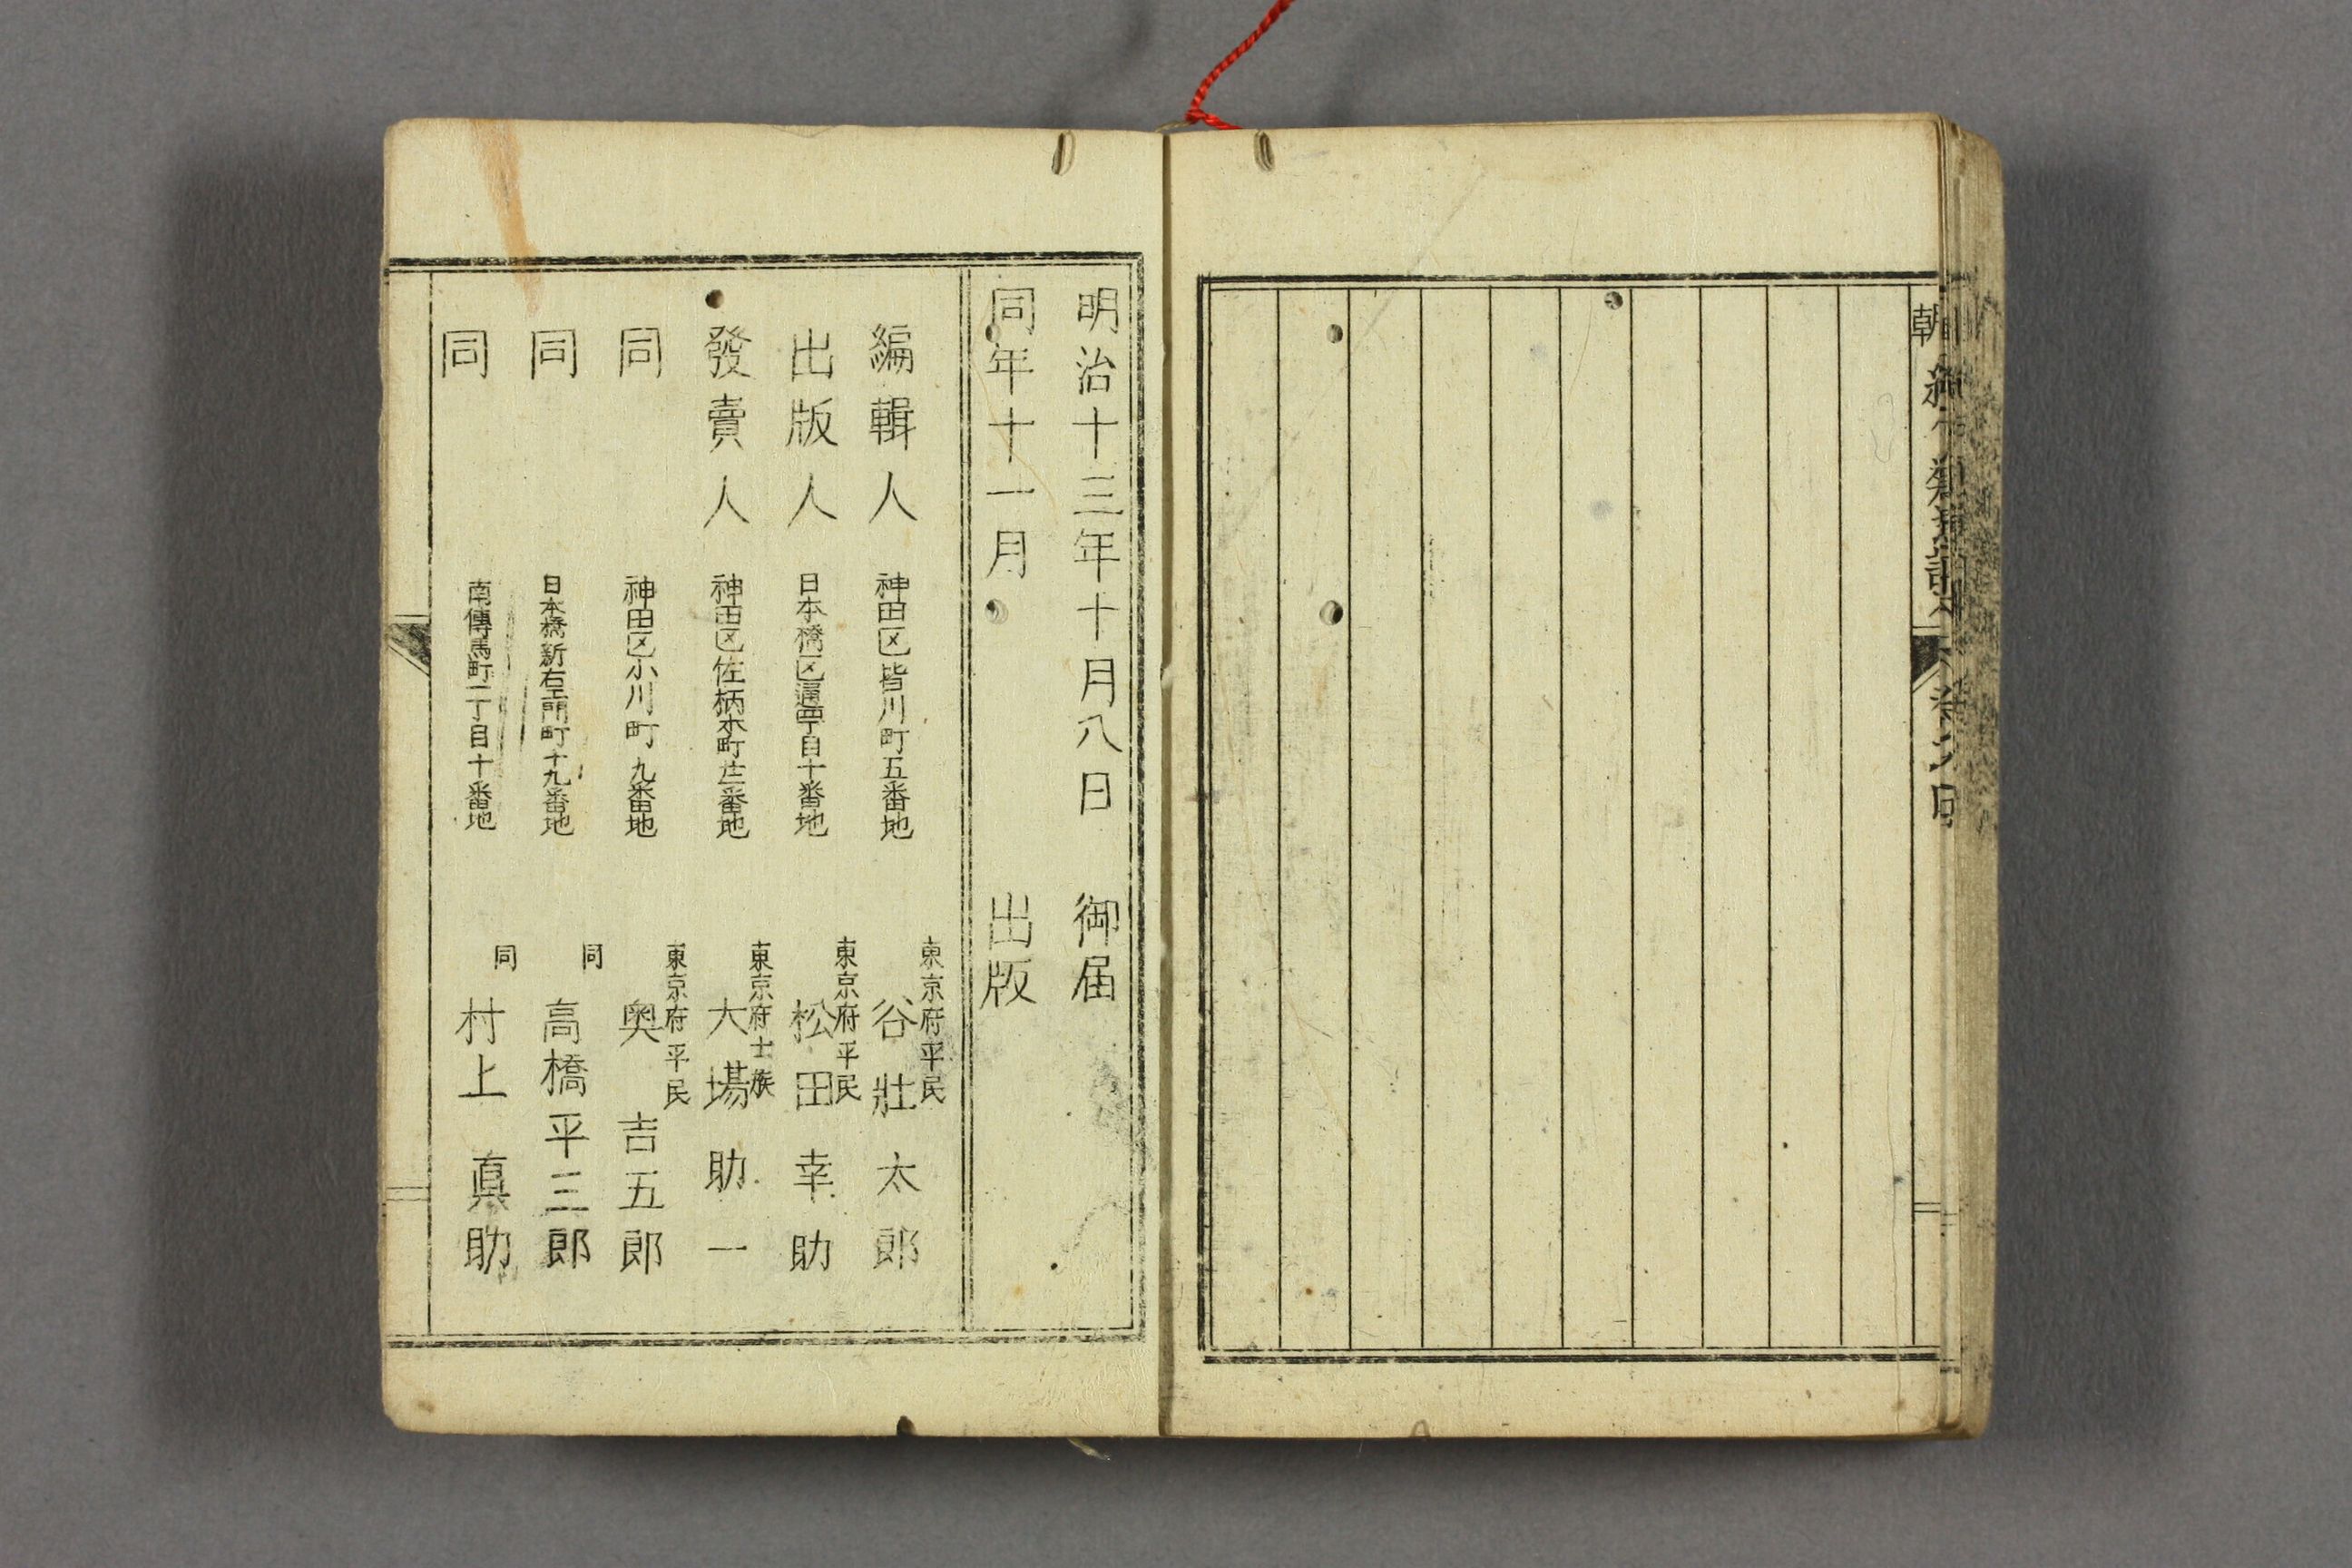 明治十三年十月八日 御届
同年十一月 出版
編輯人 神田区皆川町五番地 東京府平民 谷壯太郎
出版人 日本橋区通四丁目十番地 東京府平民 松田幸助
發賣人 神田区佐柄木町 番地 東京府士族 大場助一
同 神田区小川町九番地 東京府平民 奥吉五郎
同 日本橋新右エ門町十九番地 同 高橋平三郎
同 南傳馬町二丁目十番地 同 村上眞助